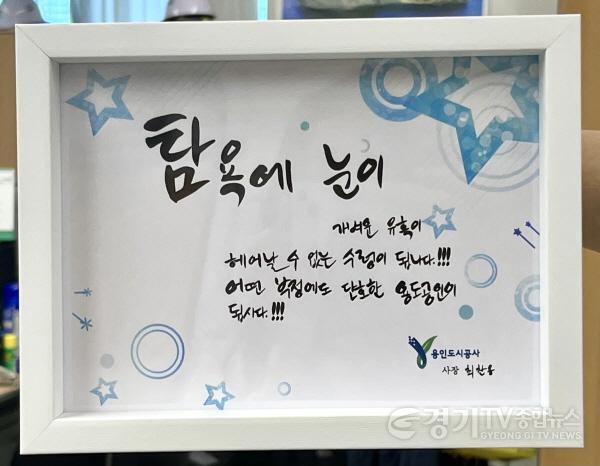 탐욕에 눈이
가벼운 유혹이
헤어날 수 없는 수렁이 됩니다.!!!
어떤 부정에도 단호한 용도공인이
됩시다.!!!
용인도시공사
사장 최찬용
경기TV종합뉴스
GYEONG GI TV NEWS